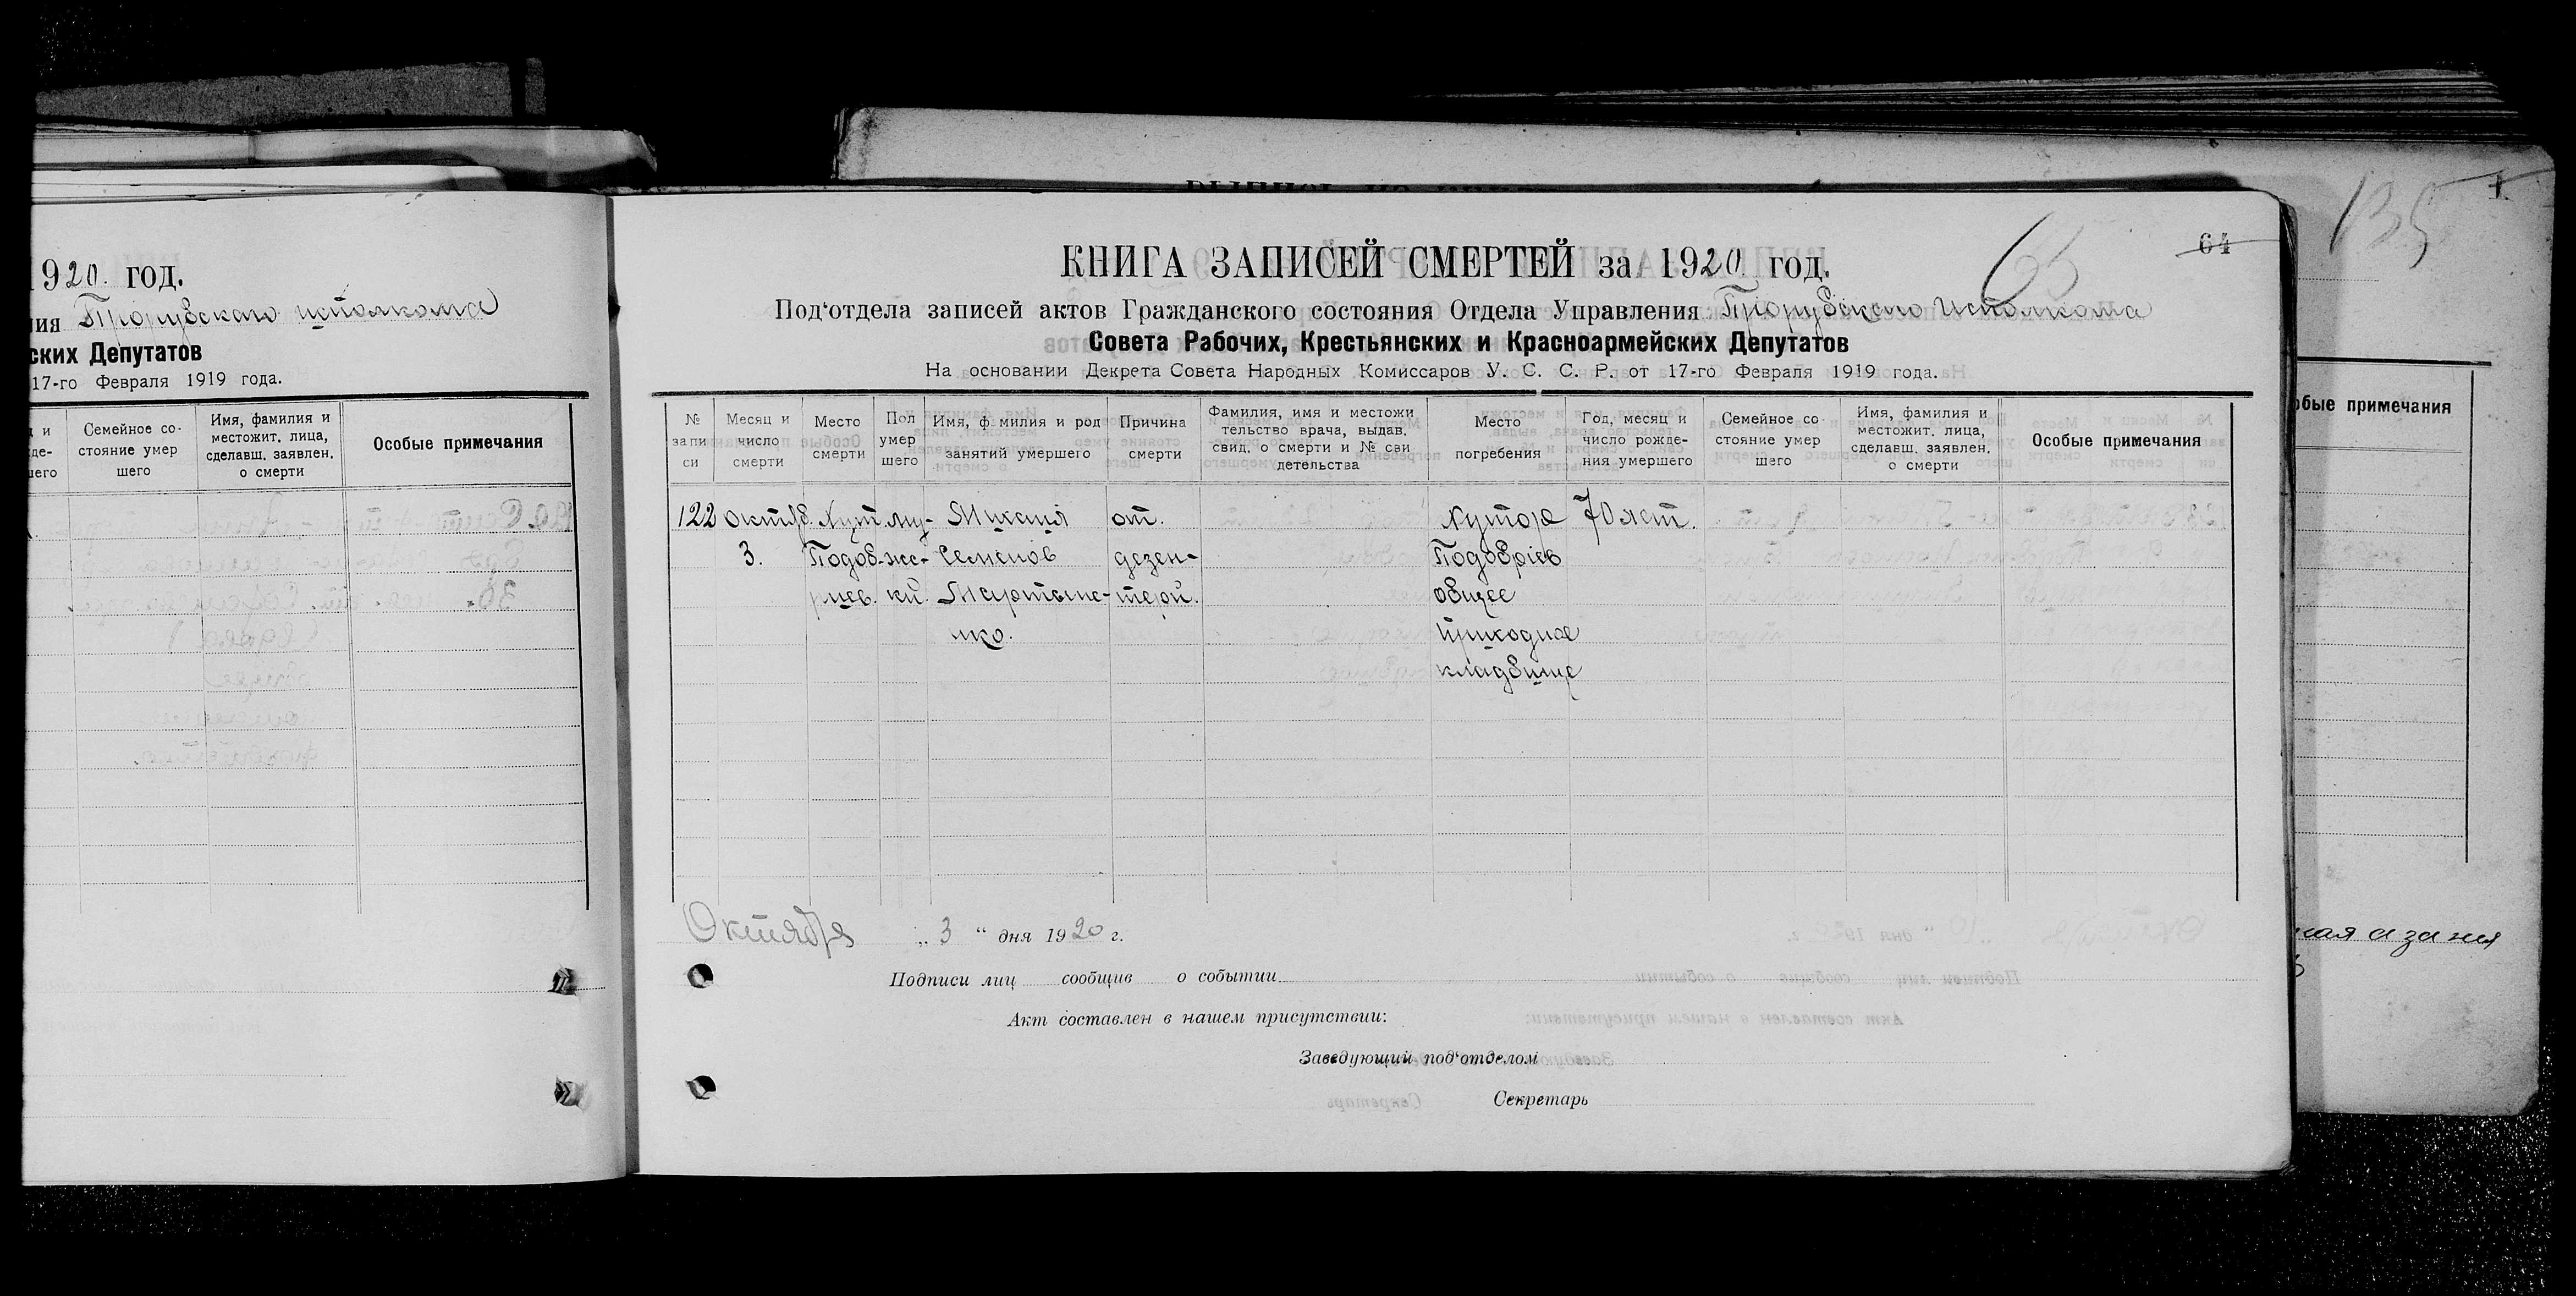 1920. год.
ния Прорубскаго исполкома
ских Депутатов
17-го Февраля 1919 года.
Семейное со-
стояние умер
шего
Имя, фамилия и
местожит. лица,
сделавш. заявлен.
о смерти
Особые примечания
135
65
64
КНИГА ЗАПИСЕЙ СМЕРТЕЙ за 1920 год.
Под‘отдела записей актов Гражданского состояния Отдела Управления Прорубскаго Исполкома
Совета Рабочих, Крестьянских и Красноармейских Депутатов
На основании Декрета Совета Народных Комиссаров У. С. С. Р. от 17-го Февраля 1919 года.
№
запи
си
Месяц и
число
смерти
Место
смерти
Пол
умер
шего
Имя, фамилия и род
занятий умершего
Причина
смерти
Фамилия, имя и местожи
тельство врача, выдав.
свид. о смерти и № сви
детельства
Место
погребения
Год, месяц и
число рожде-
ния умершего
Семейное со-
стояние умер
шего
Имя, фамилия и
местожит. лица,
сделавш. заявлен.
о смерти
Особые примечания
122 октяб. Хут. му- Михаил от. Хутора 70 лет.
3. Подоб- же- Семенов дезен-
риев. кий. Мартыне- терии. общее
нко. приходное
кладбище
Октября „ 3 “ дня 1920 г.
Подписи лиц сообщив о событии
Акт составлен в нашем присутствии:
Заведующий под‘отделом
Секретарь
обые примечания